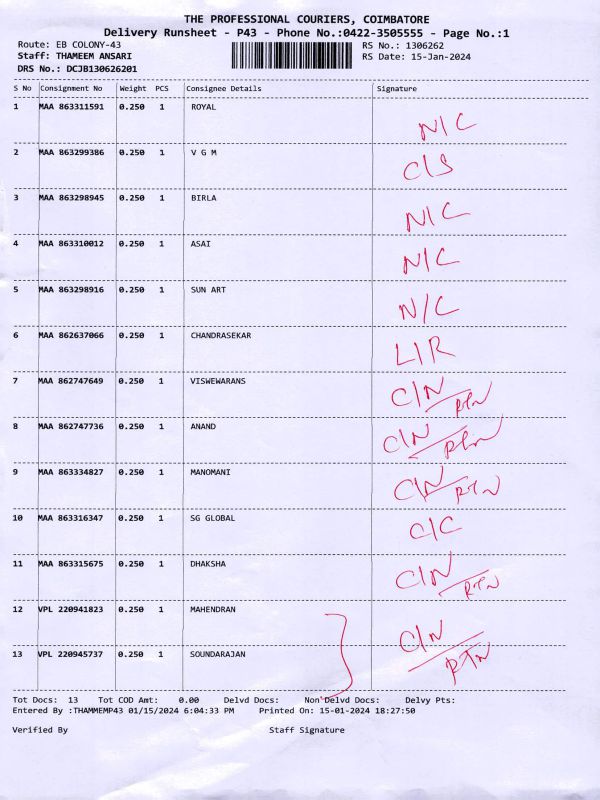 THE PROFESSIONAL COURIERS, COIMBATORE
Delivery Runsheet - P43 - Phone No.:0422-3505555 - Page No.:1
Route: EB COLONY-43 RS No.: 1306262
Staff: THAMEEM ANSARI RS Date: 15-Jan-2024
DRS No.: DCJB130626201
S No Consignment No Weight PCS Consignee Details Signature
1 MAA 863311591 0.250 1 ROYAL N/C
2 MAA 863299386 0.250 1 V G M C/S
3 MAA 863298945 0.250 1 BIRLA N/C
4 MAA 863310012 0.250 1 ASAI N/C
5 MAA 863298916 0.250 1 SUN ART N/C
6 MAA 862637066 0.250 1 CHANDRASEKAR L/R
7 MAA 862747649 0.250 1 VISWEWARANS C/N RTN
8 MAA 862747736 0.250 1 ANAND C/N RTN
9 MAA 863334827 0.250 1 MANOMANI C/N RTN
10 MAA 863316347 0.250 1 SG GLOBAL C/C
11 MAA 863315675 0.250 1 DHAKSHA C/N RTN
12 VPL 220941823 0.250 1 MAHENDRAN C/N
13 VPL 220945737 0.250 1 SOUNDARAJAN RTN
Tot Docs: 13 Tot COD Amt: 0.00 Delvd Docs: Non Delvd Docs: Delvy Pts:
Entered By :THAMMEMP43 01/15/2024 6:04:33 PM Printed On: 15-01-2024 18:27:50
Verified By Staff Signature